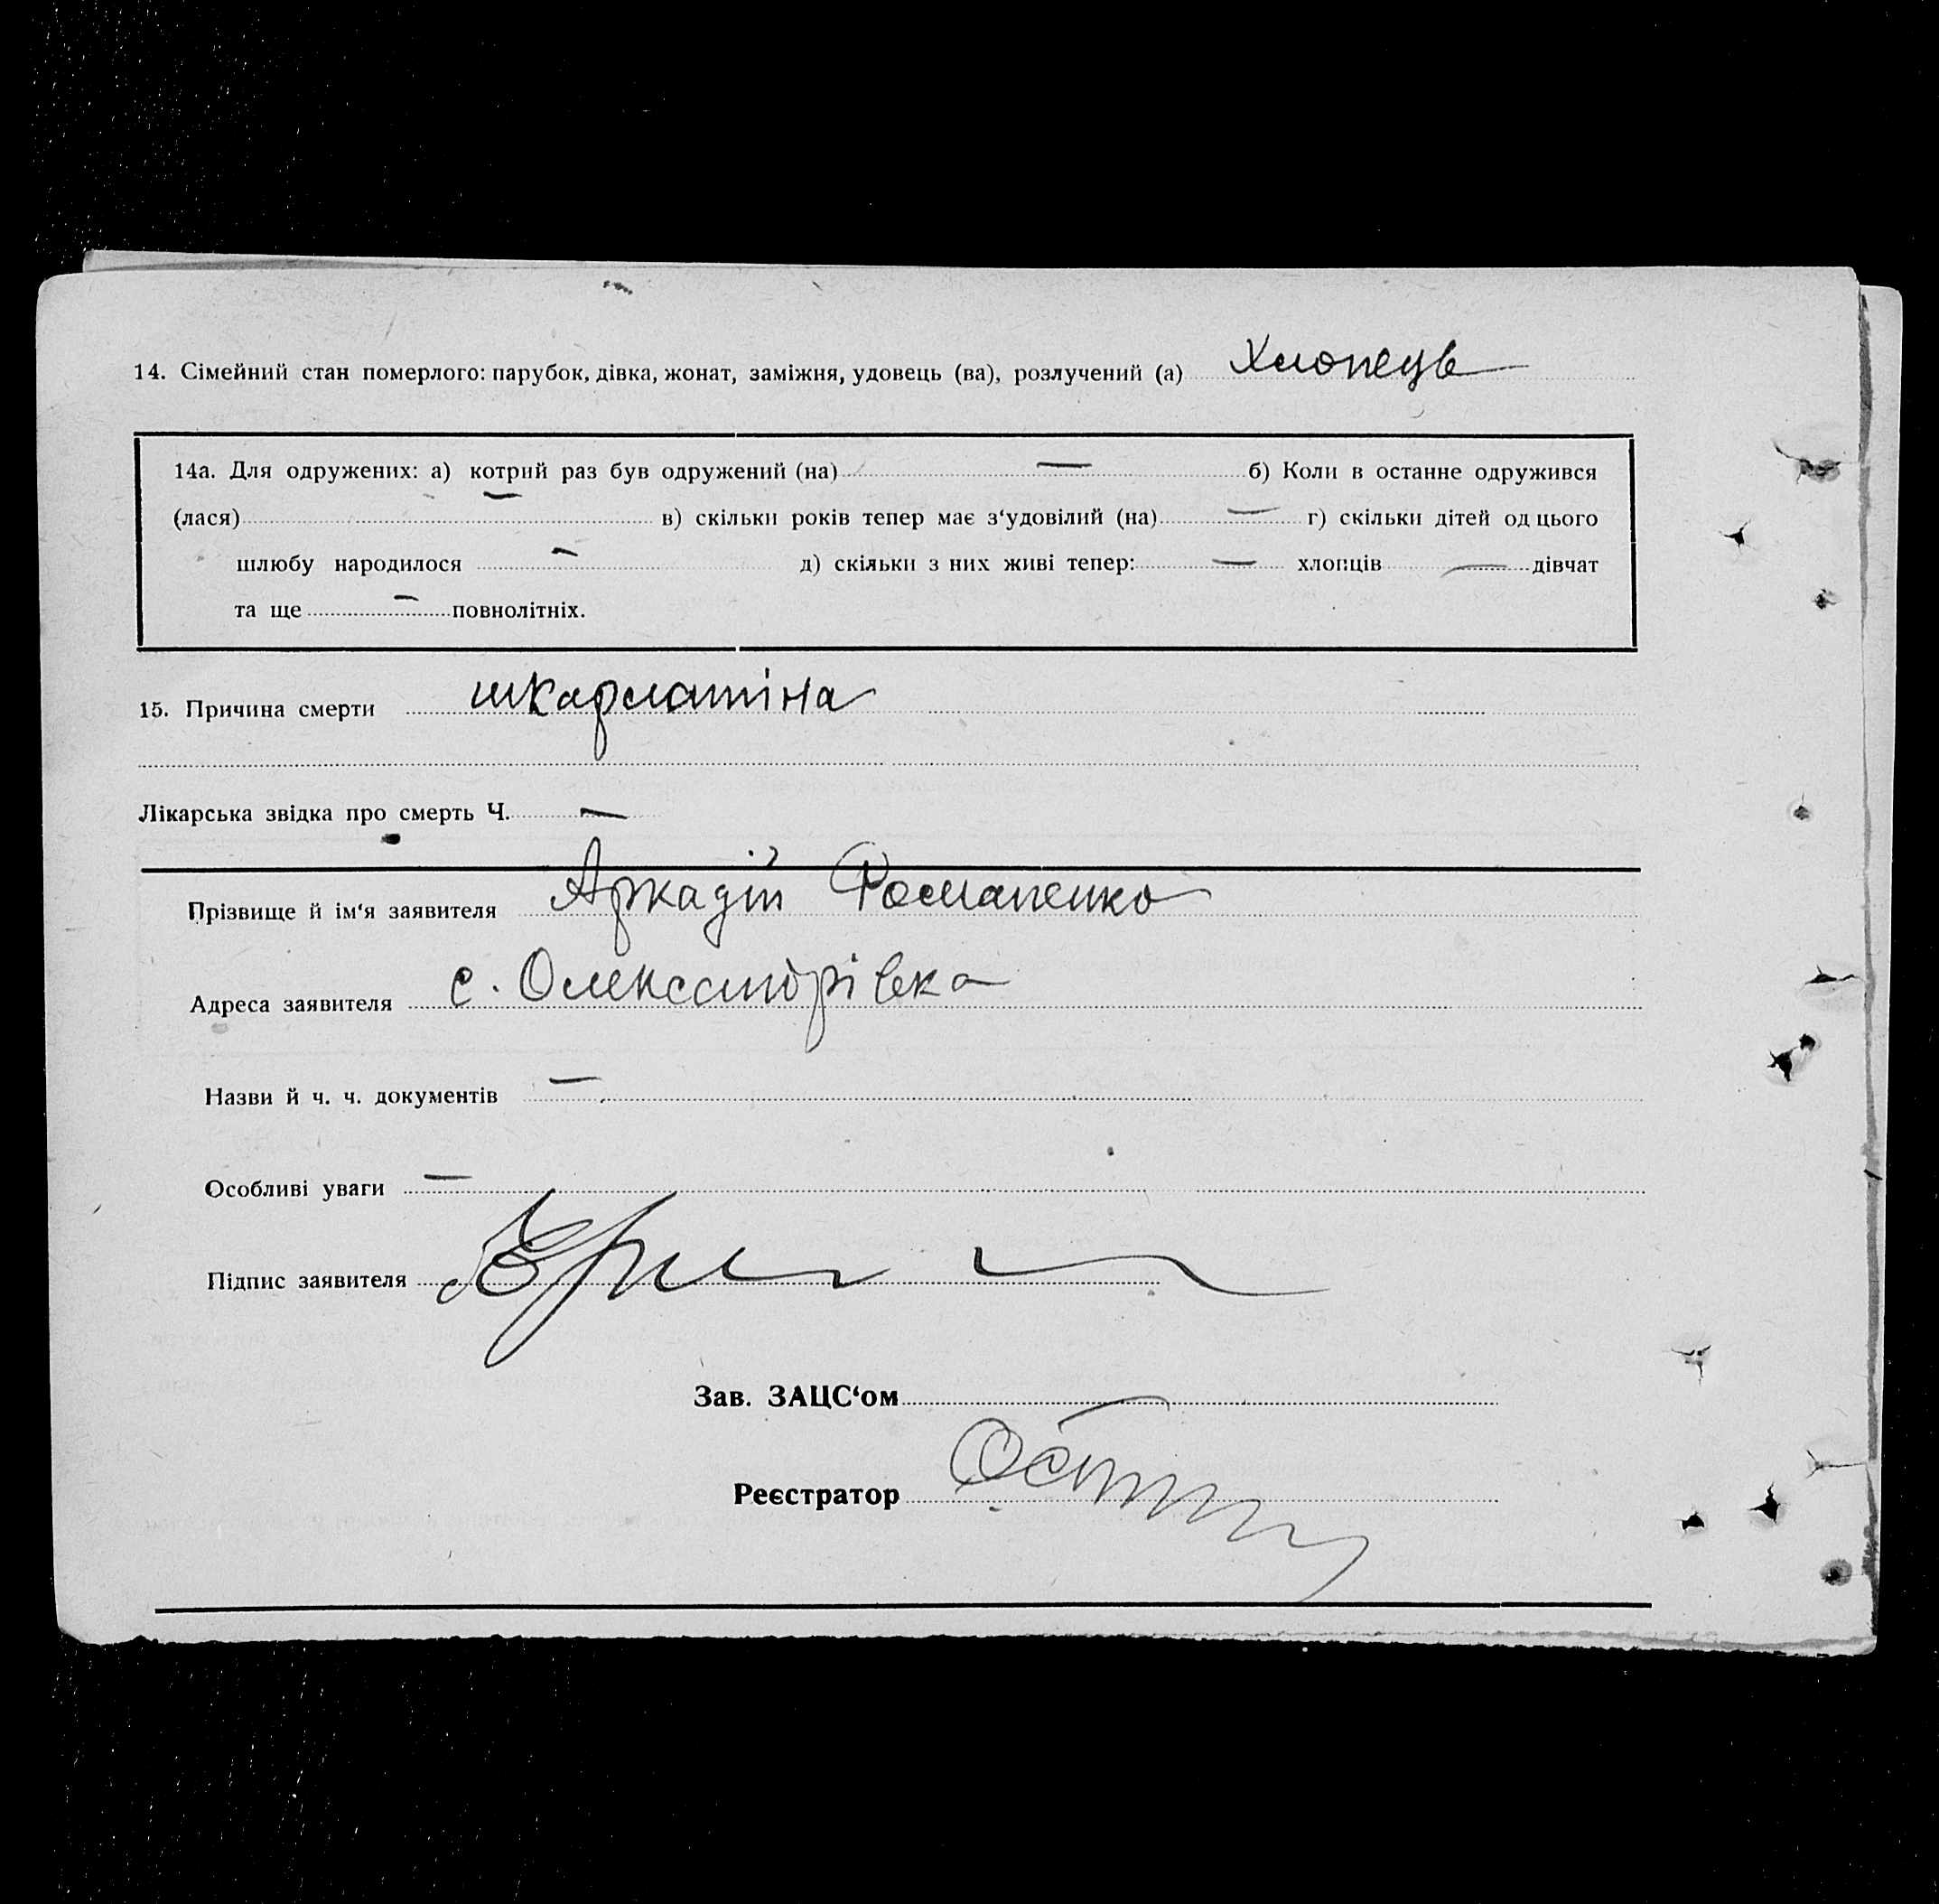 14. Сімейний стан померлого: парубок, дівка, жонат, заміжня, удовець (ва), розлучений (а) Хлопець
14а. Для одружених: а) котрий раз був одружений (на) — б) Коли в останне одружився
(лася) — в) скільки років тепер має з‘удовілий (на) — г) скільки дітей од цього
шлюбу народилося — д) скільки з них живі тепер: — хлопців — дівчат
та ще — повнолітніх.
15. Причина смерти шкарлатіна
Лікарська звідка про смерть Ч. —
Прізвище й ім‘я заявителя Аркадій Романенко
Адреса заявителя с. Олександрівка
Назви й ч. ч. документів —
Особливі уваги —
Підпис заявителя
Зав. ЗАЦС‘ом
Реєстратор